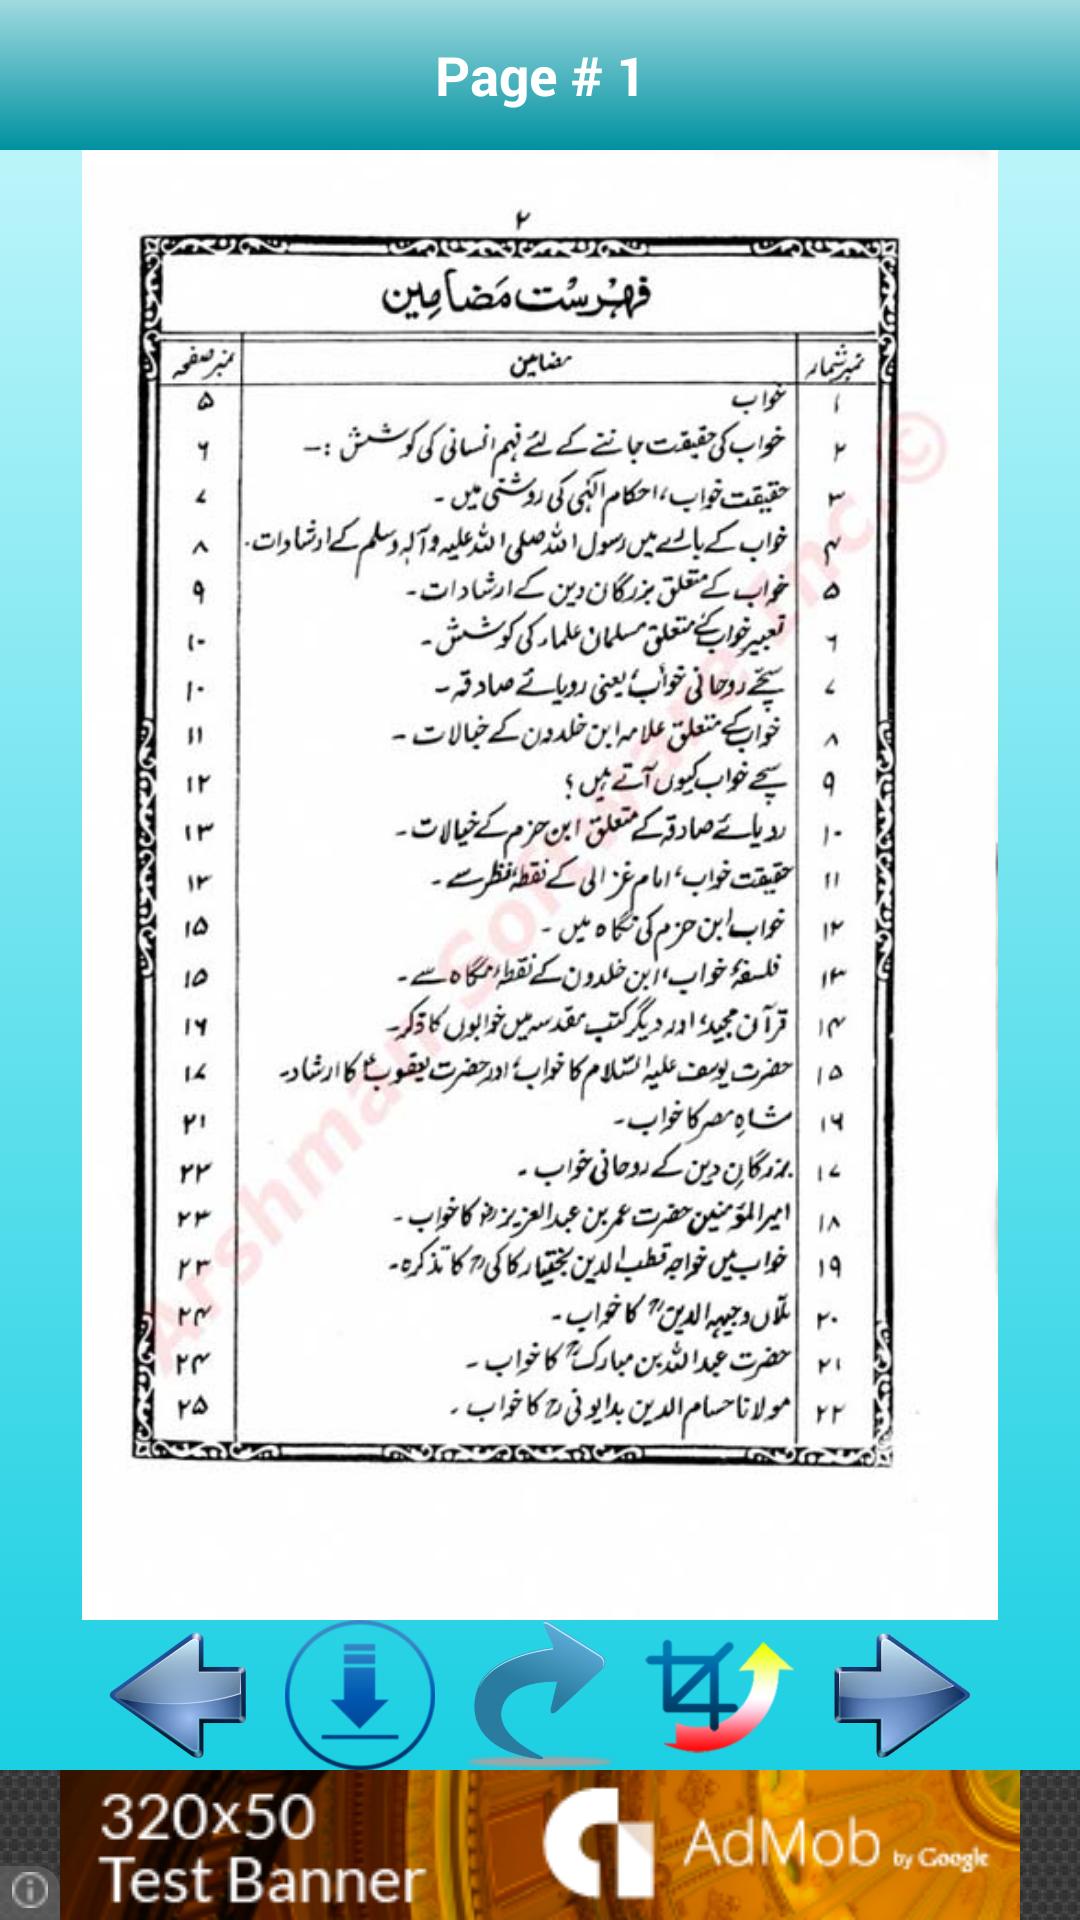 Page # 1
۲
فہرست مضامین
نمبر شمار مضامین نمبر صفحہ
۱ خواب ۵
۲ خواب کی حقیقت جاننے کے لئے فہم انسانی کی کوشش :– ۶
۳ حقیقت خواب، احکام الٰہی کی روشنی میں ۔ ۷
۴ خواب کے بارے میں رسول اللہ صلی اللہ علیہ و آلہ وسلم کے ارشادات۔ ۸
۵ خواب کے متعلق بزرگان دین کے ارشادات۔ ۹
۶ تعبیر خواب کے متعلق مسلمان علماء کی کوشش۔ ۱۰
۷ سچے روحانی خواب، یعنی رویائے صادقہ۔ ۱۰
۸ خواب کے متعلق علامہ ابن خلدون کے خیالات ۔ ۱۱
۹ سچے خواب کیوں آتے ہیں؟ ۱۲
۱۰ رویائے صادقہ کے متعلق ابن حزم کے خیالات۔ ۱۳
۱۱ حقیقت خواب، امام غزالی کے نقطۂ نظر سے ۔ ۱۳
۱۲ خواب ابن حزم کی نگاہ میں ۔ ۱۵
۱۳ فلسفۂ خواب، ابن خلدون کے نقطۂ نگاہ سے۔ ۱۵
۱۴ قرآن مجید، اور دیگر کتب مقدسہ میں خوابوں کا ذکر۔ ۱۶
۱۵ حضرت یوسف علیہ السّلام کا خواب، اور حضرت یعقوبؑ کا ارشاد۔ ۱۷
۱۶ شاہِ مصر کا خواب۔ ۲۱
۱۷ بزرگانِ دین کے روحانی خواب ۔ ۲۲
۱۸ امیر المؤمنین حضرت عمر بن عبدالعزیزرض کا خواب۔ ۲۳
۱۹ خواب میں خواجہ قطب الدین بختیار کاکیؒ کا تذکرہ۔ ۲۳
۲۰ ملّاں وجیہہ الدینؒ کا خواب۔ ۲۴
۲۱ حضرت عبداللہ بن مبارکؒ کا خواب ۔ ۲۴
۲۲ مولانا حسام الدین بدایونیؒ کا خواب ۔ ۲۵
Arshman Software Inc. ©
320x50
Test Banner
AdMob by Google